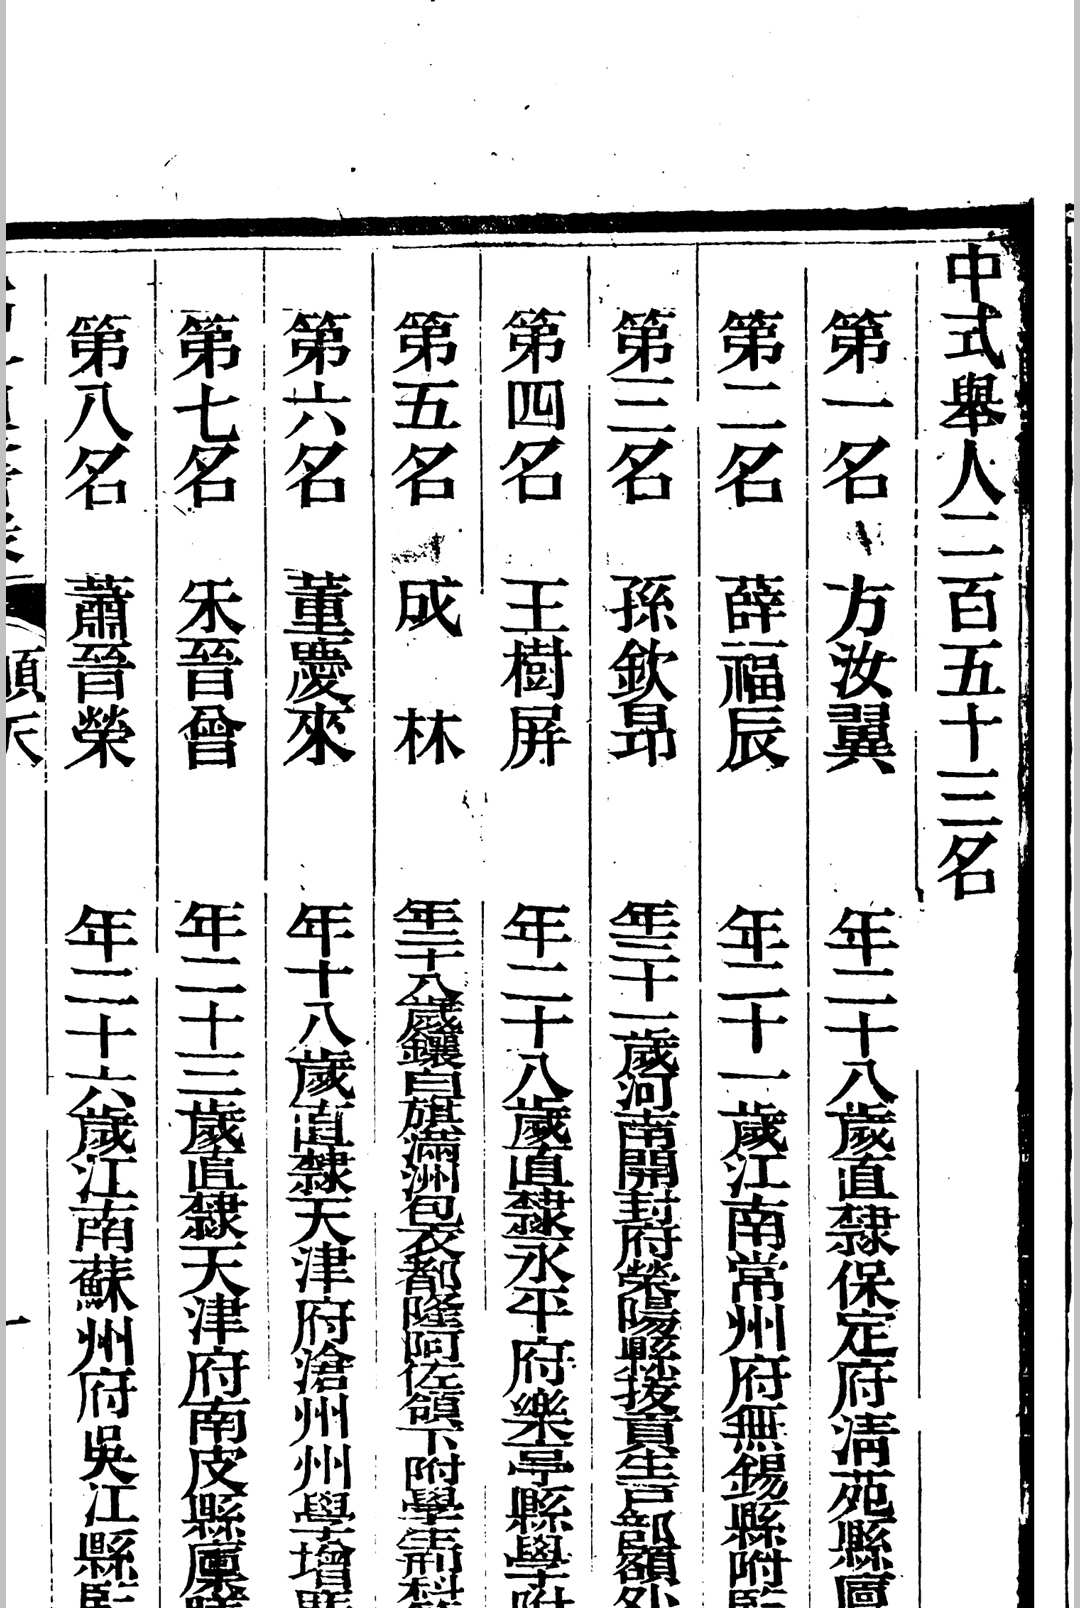 中式舉人二百五十三名
第一名 方汝翼 年二十八歲直隸保定府清苑縣
第二名 薛福辰 年二十一歲江南常州府無錫縣附監
第三名 孫欽昂 年三十一歲河南開封府滎陽縣拔貢生戶部額外
第四名 王樹屏 年二十八歲直隸永平府樂亭縣學附
第五名 成林 年二十八歲鑲白旗滿洲包衣都隆阿佐領下附學生刑科
第六名 董慶來 年十八歲直隸天津府滄州州學增
第七名 朱晉曾 年二十三歲直隸天津府南皮縣廩
第八名 蕭晉榮 年二十六歲江南蘇州府吳江縣監
順天 一